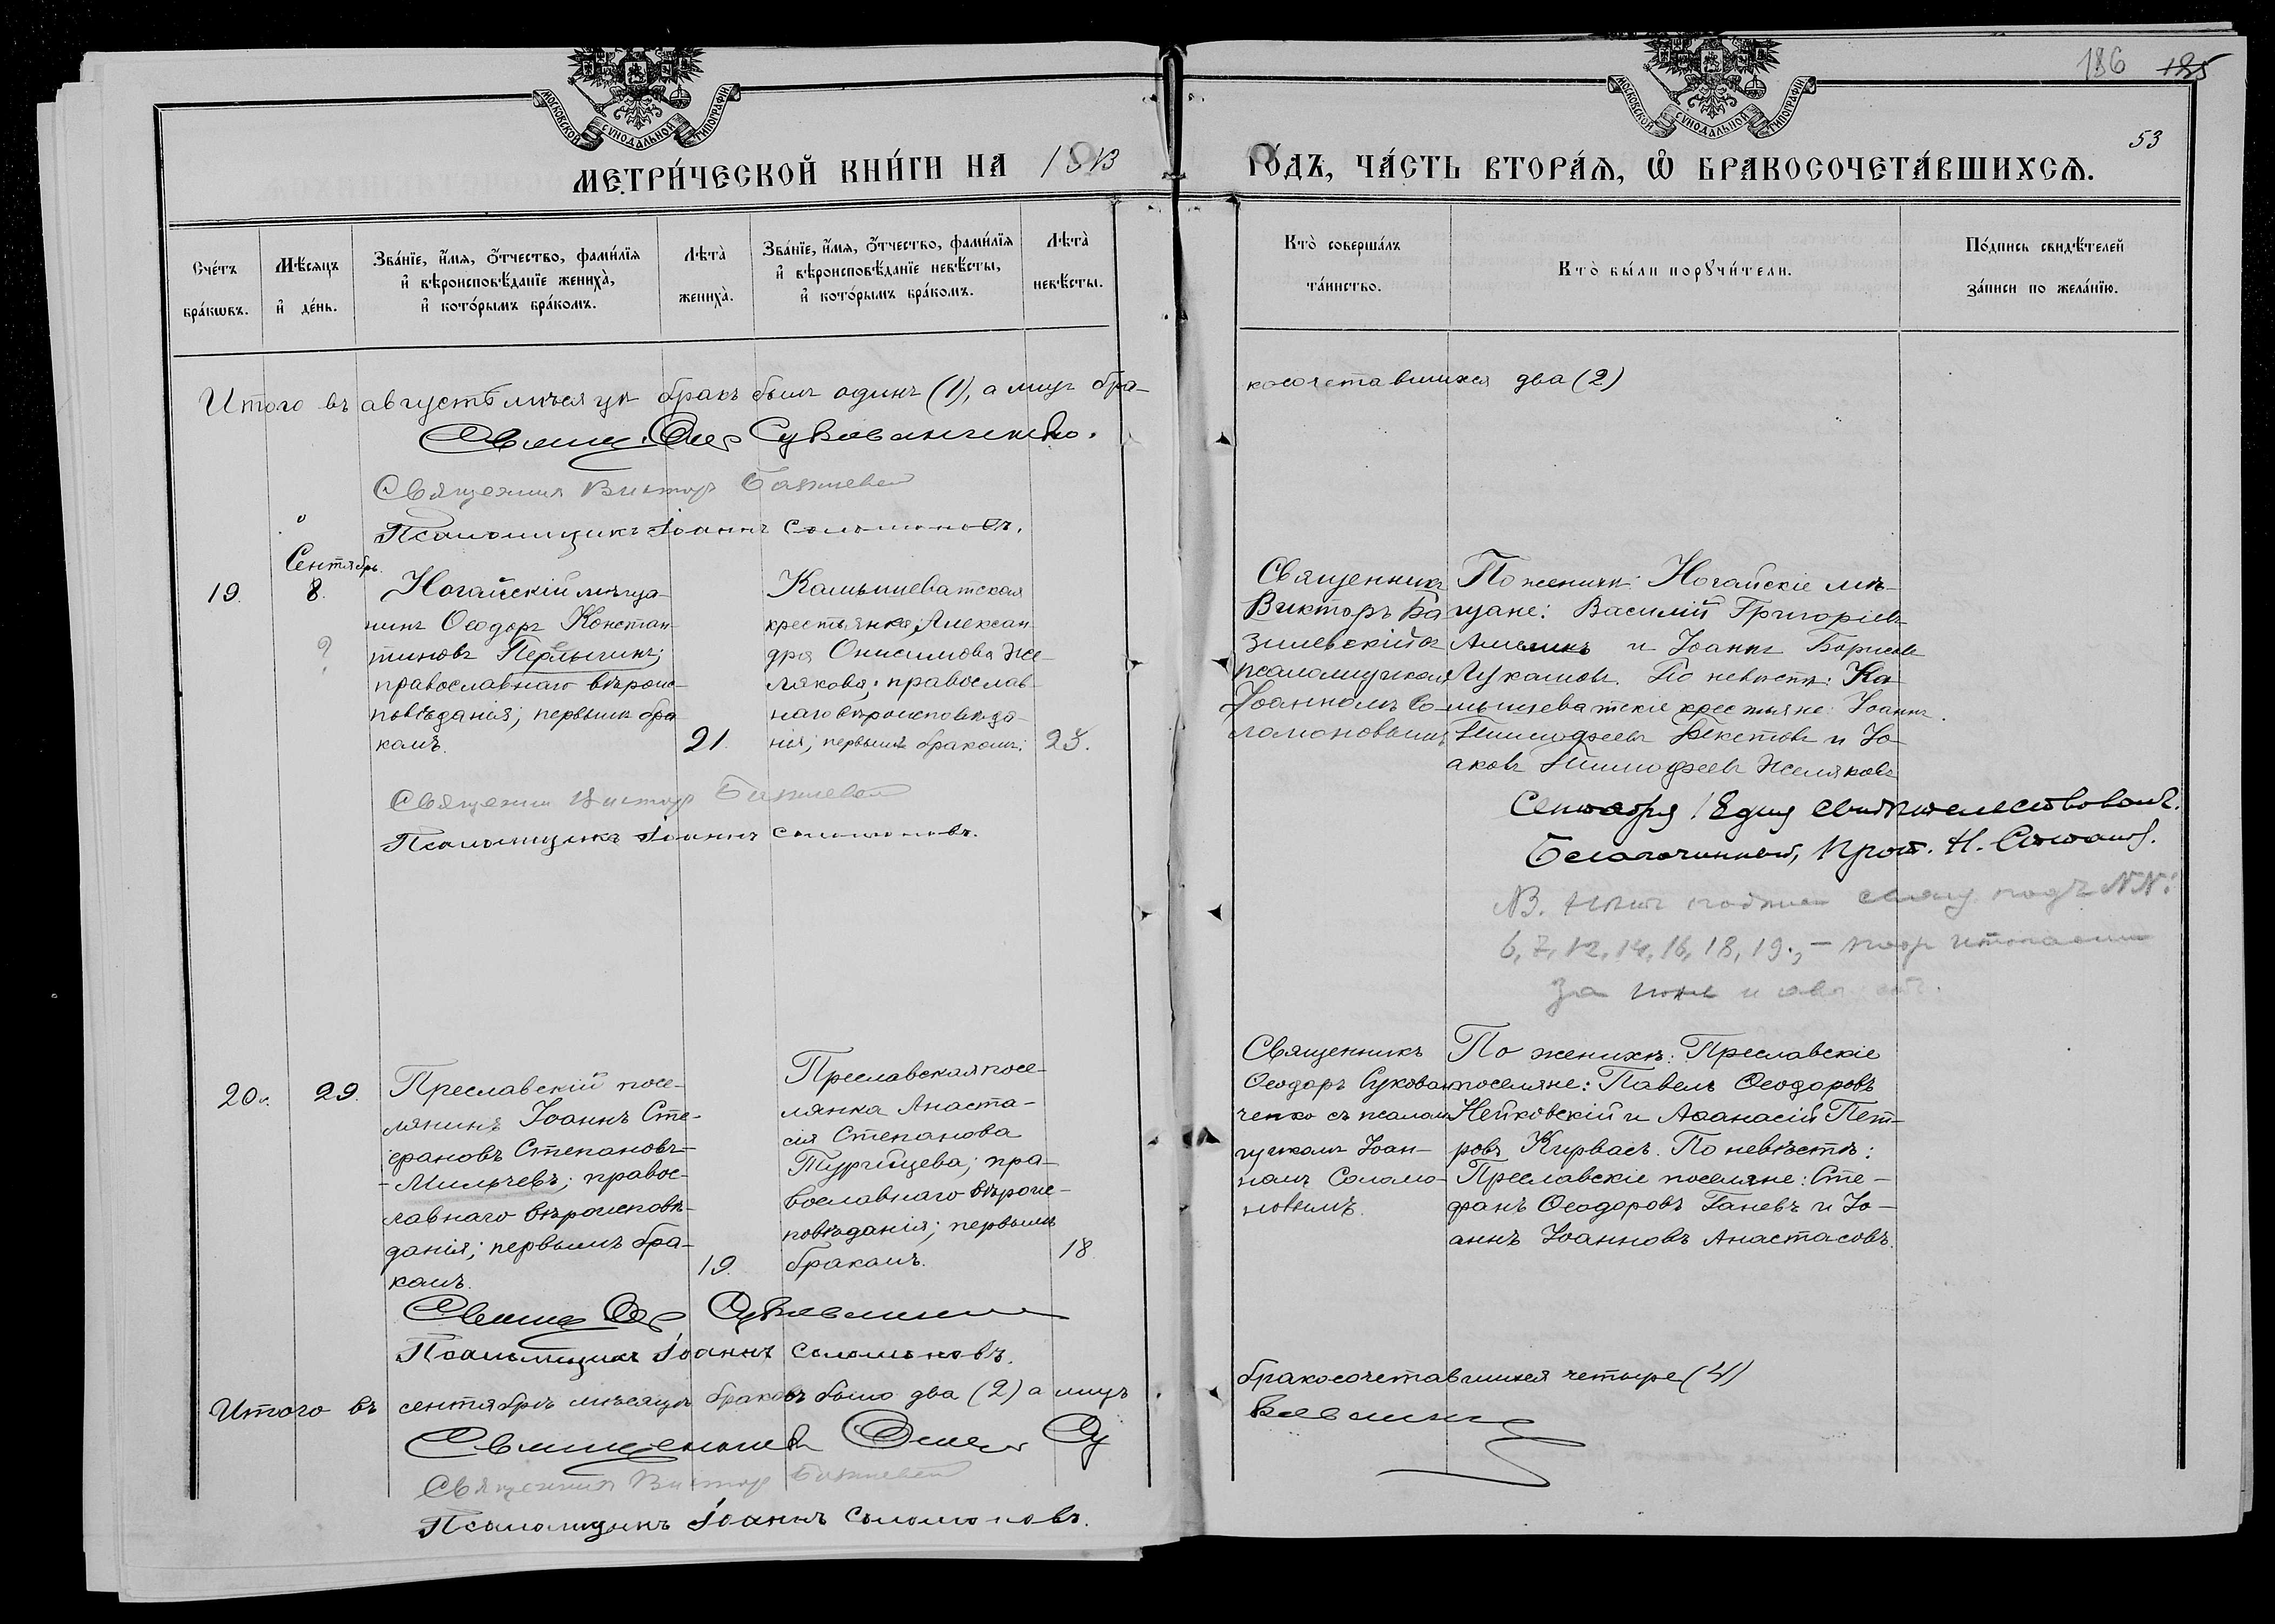 186 185
53
МОСКОВСКОЙ СѴНОДАЛЬНОЙ ТИПОГРАФІИ
МОСКОВСКОЙ СѴНОДАЛЬНОЙ ТИПОГРАФІИ
МЕТРИ́ЧЕСКОЙ КНИ́ГИ НА
ГО́ДЪ, ЧА́СТЬ ВТОРА́Я, Ѽ БРАКОСОЧЕТА́ВШИХСЯ.
Сче́тъ бра́кѡвъ.
Мѣ́сяцъ и҆ де́нь.
Зва́нїе, и҆́мя, ѻ҆́тчество, фами́лїя
и҆ вѣроисповѣ́данїе жениха̀,
и҆ кото́рымъ бра́комъ.
Лѣта̀ жениха̀.
Зва́нїе, и҆́мя, ѻ҆́тчество, фами́лїя
и҆ вѣроисповѣ́данїе невѣ́сты,
и҆ кото́рымъ бра́комъ.
Лѣта̀ невѣ́сты.
Кто̀ соверша́лъ та́инство.
Кто̀ бы́ли порꙋчи́тели.
По́дпись свидѣ́телей за́писи по жела́нїю.
Итого въ августѣ мѣсяцѣ бракъ былъ одинъ (1), а лицъ бра-
косочетавшихся два (2)
Свящ. Ѳеод Сукованченко.
Священникъ Викторъ
Псаломщикъ Іоаннъ Соломоновъ.
Сентябрь.
19.
8.
Ногайскій мѣща-
нинъ Ѳеодоръ Констан-
тиновъ
?
православнаго вѣроис-
повѣданія; первымъ бра-
комъ.
21.
Камышеватская
крестьянка, Алексан-
дра Онисимова Же-
лякова; православ-
наго вѣроисповѣда-
нія; первымъ бракомъ;
23.
Священникъ
Викторъ Ба-
зилевскій съ
псаломщикомъ
Іоанномъ Со-
ломоновымъ
По женихѣ: Ногайскіе мѣ-
щане: Василій Григоріевъ
и Іоаннъ Борисовъ
Лукашовъ. По невѣстѣ: Ка-
мышеватскіе крестьяне: Іоаннъ
Тимофеевъ и Іо-
аковъ Тимофеевъ Желяковъ
Священник Виктор
Псаломщикъ Іоаннъ Соломоновъ.
Сентября дня свидѣтельствовалъ.
Благочинный, Прот. Н.
NВ. Нѣтъ подписи свящ. подъ NN:
6, 7, 12, 14, 16, 18, 19.,
за и
20.
29.
Преславскій посе-
лянинъ Іоаннъ Сте-
фановъ Степановъ-
-Мильчевъ; правос-
лавнаго вѣроисповѣ-
данія; первымъ бра-
комъ.
19.
Преславская посе-
лянка Анаста-
сія Степанова
пра-
вославнаго вѣроис-
повѣданія; первымъ
бракомъ.
18.
Священникъ
Ѳеодоръ Сукован-
ченко съ псалом-
щикомъ Іоан-
номъ Соломо-
новымъ.
По женихѣ: Преславскіе
поселяне: Павелъ Ѳеодоровъ
Нейковскій и Аѳанасій Пет-
ровъ Кирвасъ. По невѣстѣ:
Преславскіе поселяне: Сте-
фанъ Ѳеодоровъ Ганевъ и Іо-
аннъ Іоанновъ Анастасовъ.
Псаломщикъ Іоаннъ Соломоновъ.
Итого въ сентябрѣ мѣсяцѣ браковъ было два (2) а лицъ
бракосочетавшихся четыре (4)
Священникъ
Священникъ Викторъ
Псаломщикъ Іоаннъ Соломоновъ.